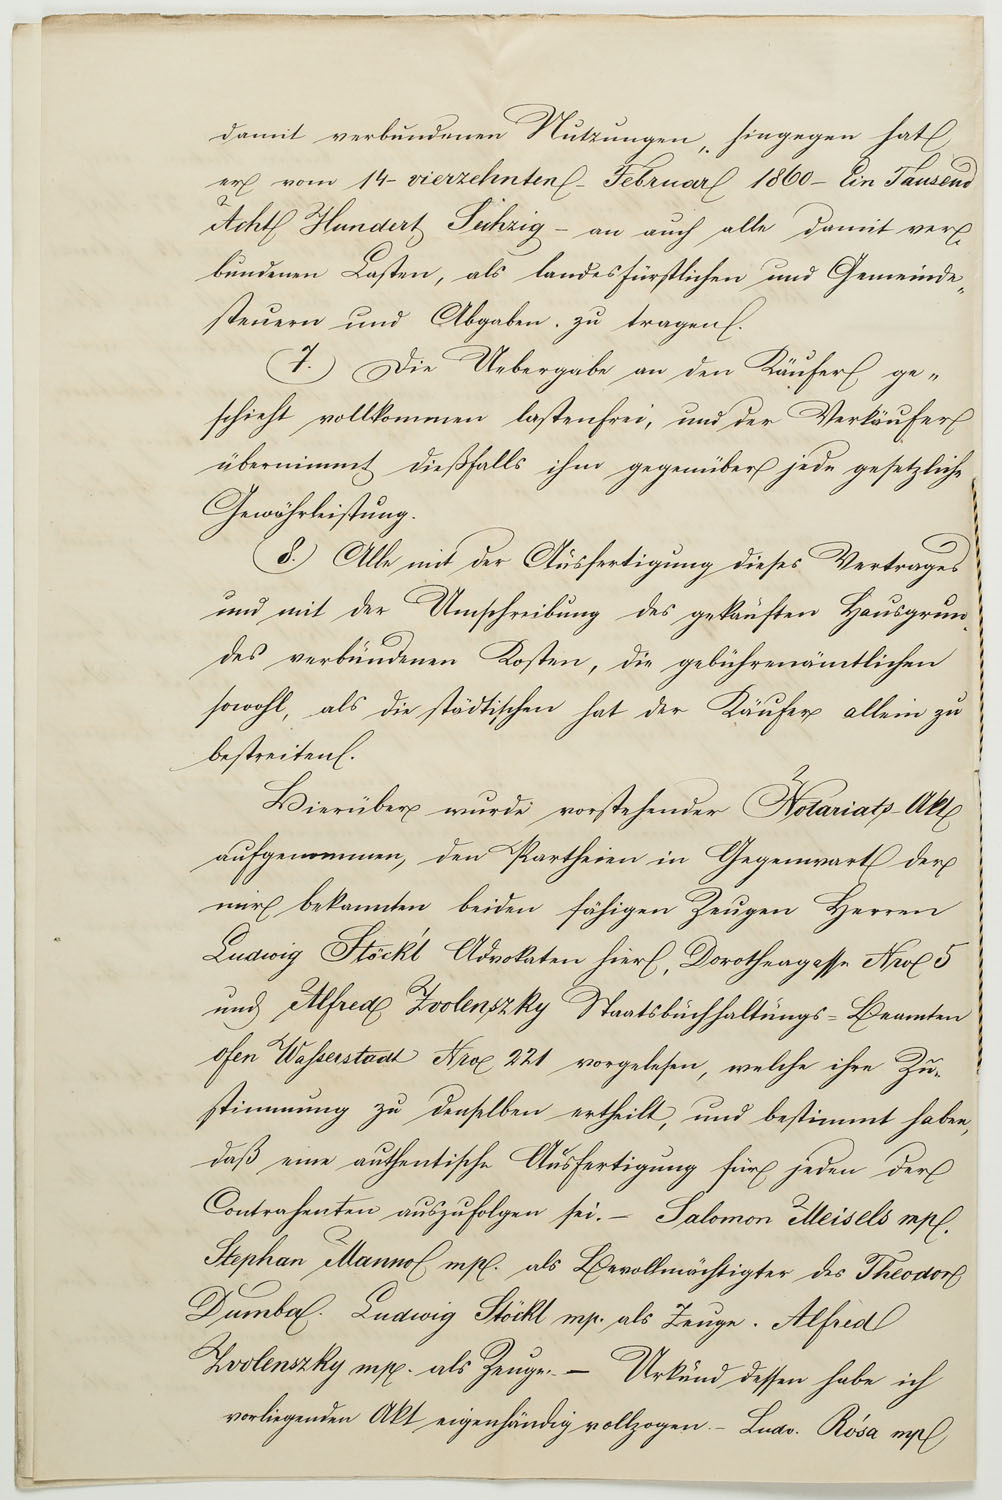 damit verbundenen Nutzungen, hingegen hat
er vom 14- vierzehnten - Februar 1860 - Ein Tausend
Acht Hundert Sechzig - an auch alle damit ver-
bundenen Lasten, als landesfürstlichen und Gemeinde-
steuern und Abgaben. zu tragen.
7.) Die Uebergabe an den Käufer ge-
schieht vollkommen lastenfrei, und der Verkäufer
übernimmt dießfalls ihm gegenüber jede gesetzliche
Gewährleistung.
8.) Alle mit der Ausfertigung dieses Vertrages
und mit der Umschreibung des gekauften Hausgrun-
des verbundenen Kosten, die gebührenämtlichen
sowohl, als die städtischen hat der Käufer allein zu
bestreiten.
Hierüber wurde vorstehender Notariats-Akt
aufgenommen, den Partheien in Gegenwart der
mir bekannten beiden fähigen Zeugen Herren
Ludwig Stöckl Advokaten hier, Dorotheagasse Nro 5
und Alfred Zvolenszky Staatsbuchhaltungs-Beamten
Ofen Wasserstadt Nro 221 vorgelesen, welche ihre Zu-
stimmung zu denselben ertheilt, und bestimmt haben,
daß eine authentische Ausfertigung für jeden der
Contrahenten auszufolgen sei. - Salomon Meisels mp.
Stephan Manno mp. als Bevollmächtigter des Theodor
Dumba. Ludwig Stöckl mp. als Zeuge. Alfred
Zvolenszky mp. als Zeuge. - Urkund dessen habe ich
vorliegenden Akt eigenhändig vollzogen. - Ludv. Rósa mp